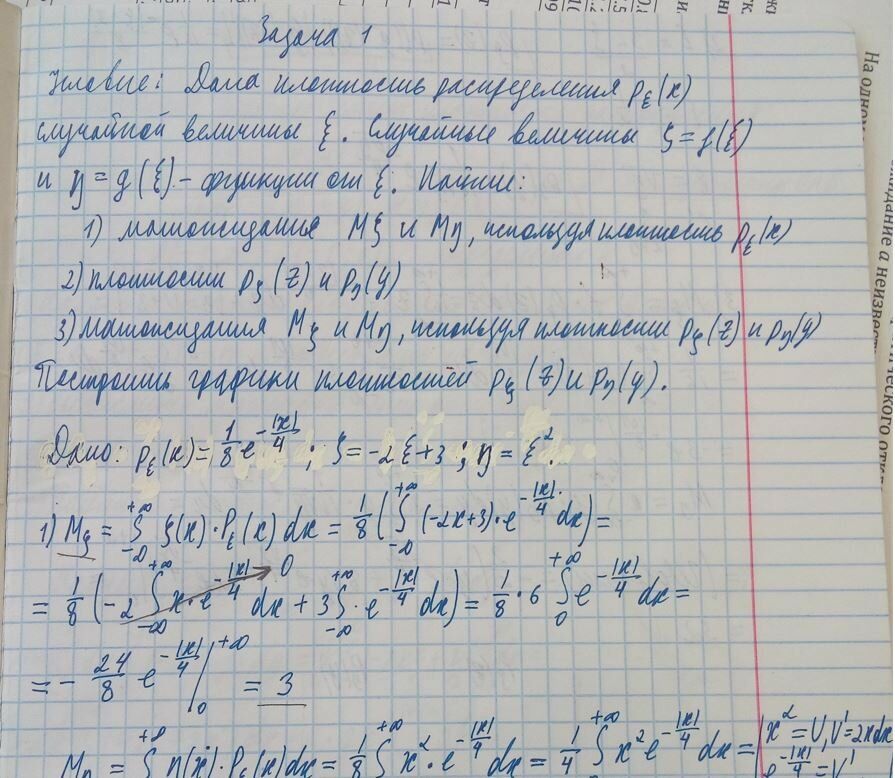 Задача 1
Условие: Дана плотность распределения p_ξ(x)
случайной величины ξ. Случайные величины ζ = f(ξ)
и η = g(ξ) – функции от ξ. Найти:
1) матожидания Mζ и Mη, используя плотность p_ξ(x)
2) плотности p_ζ(z) и p_η(y)
3) матожидания Mζ и Mη, используя плотности p_ζ(z) и p_η(y)
Построить графики плотностей p_ζ(z) и p_η(y).
Дано: p_ξ(x) = 1/8 e^{-|x|/4}; ζ = -2ξ + 3; η = ξ².
1) Mζ = ∫_{-∞}^{+∞} ζ(x)·P_ξ(x) dx = 1/8 (∫_{-∞}^{+∞} (-2x+3)·e^{-|x|/4} dx) =
= 1/8 (-2 ∫_{-∞}^{+∞} x·e^{-|x|/4} dx → 0 + 3 ∫_{-∞}^{+∞} · e^{-|x|/4} dx) = 1/8 · 6 ∫_0^{+∞} e^{-|x|/4} dx =
= - 24/8 e^{-|x|/4} |_0^{+∞} = 3
Mη = ∫^{+∞} η(x)·P_ξ(x) dx = 1/8 ∫^{+∞} x²·e^{-|x|/4} dx = 1/4 ∫^{+∞} x² e^{-|x|/4} dx = | x² = U, U' = 2x dx
e^{-|x|/4} = V'
На одном